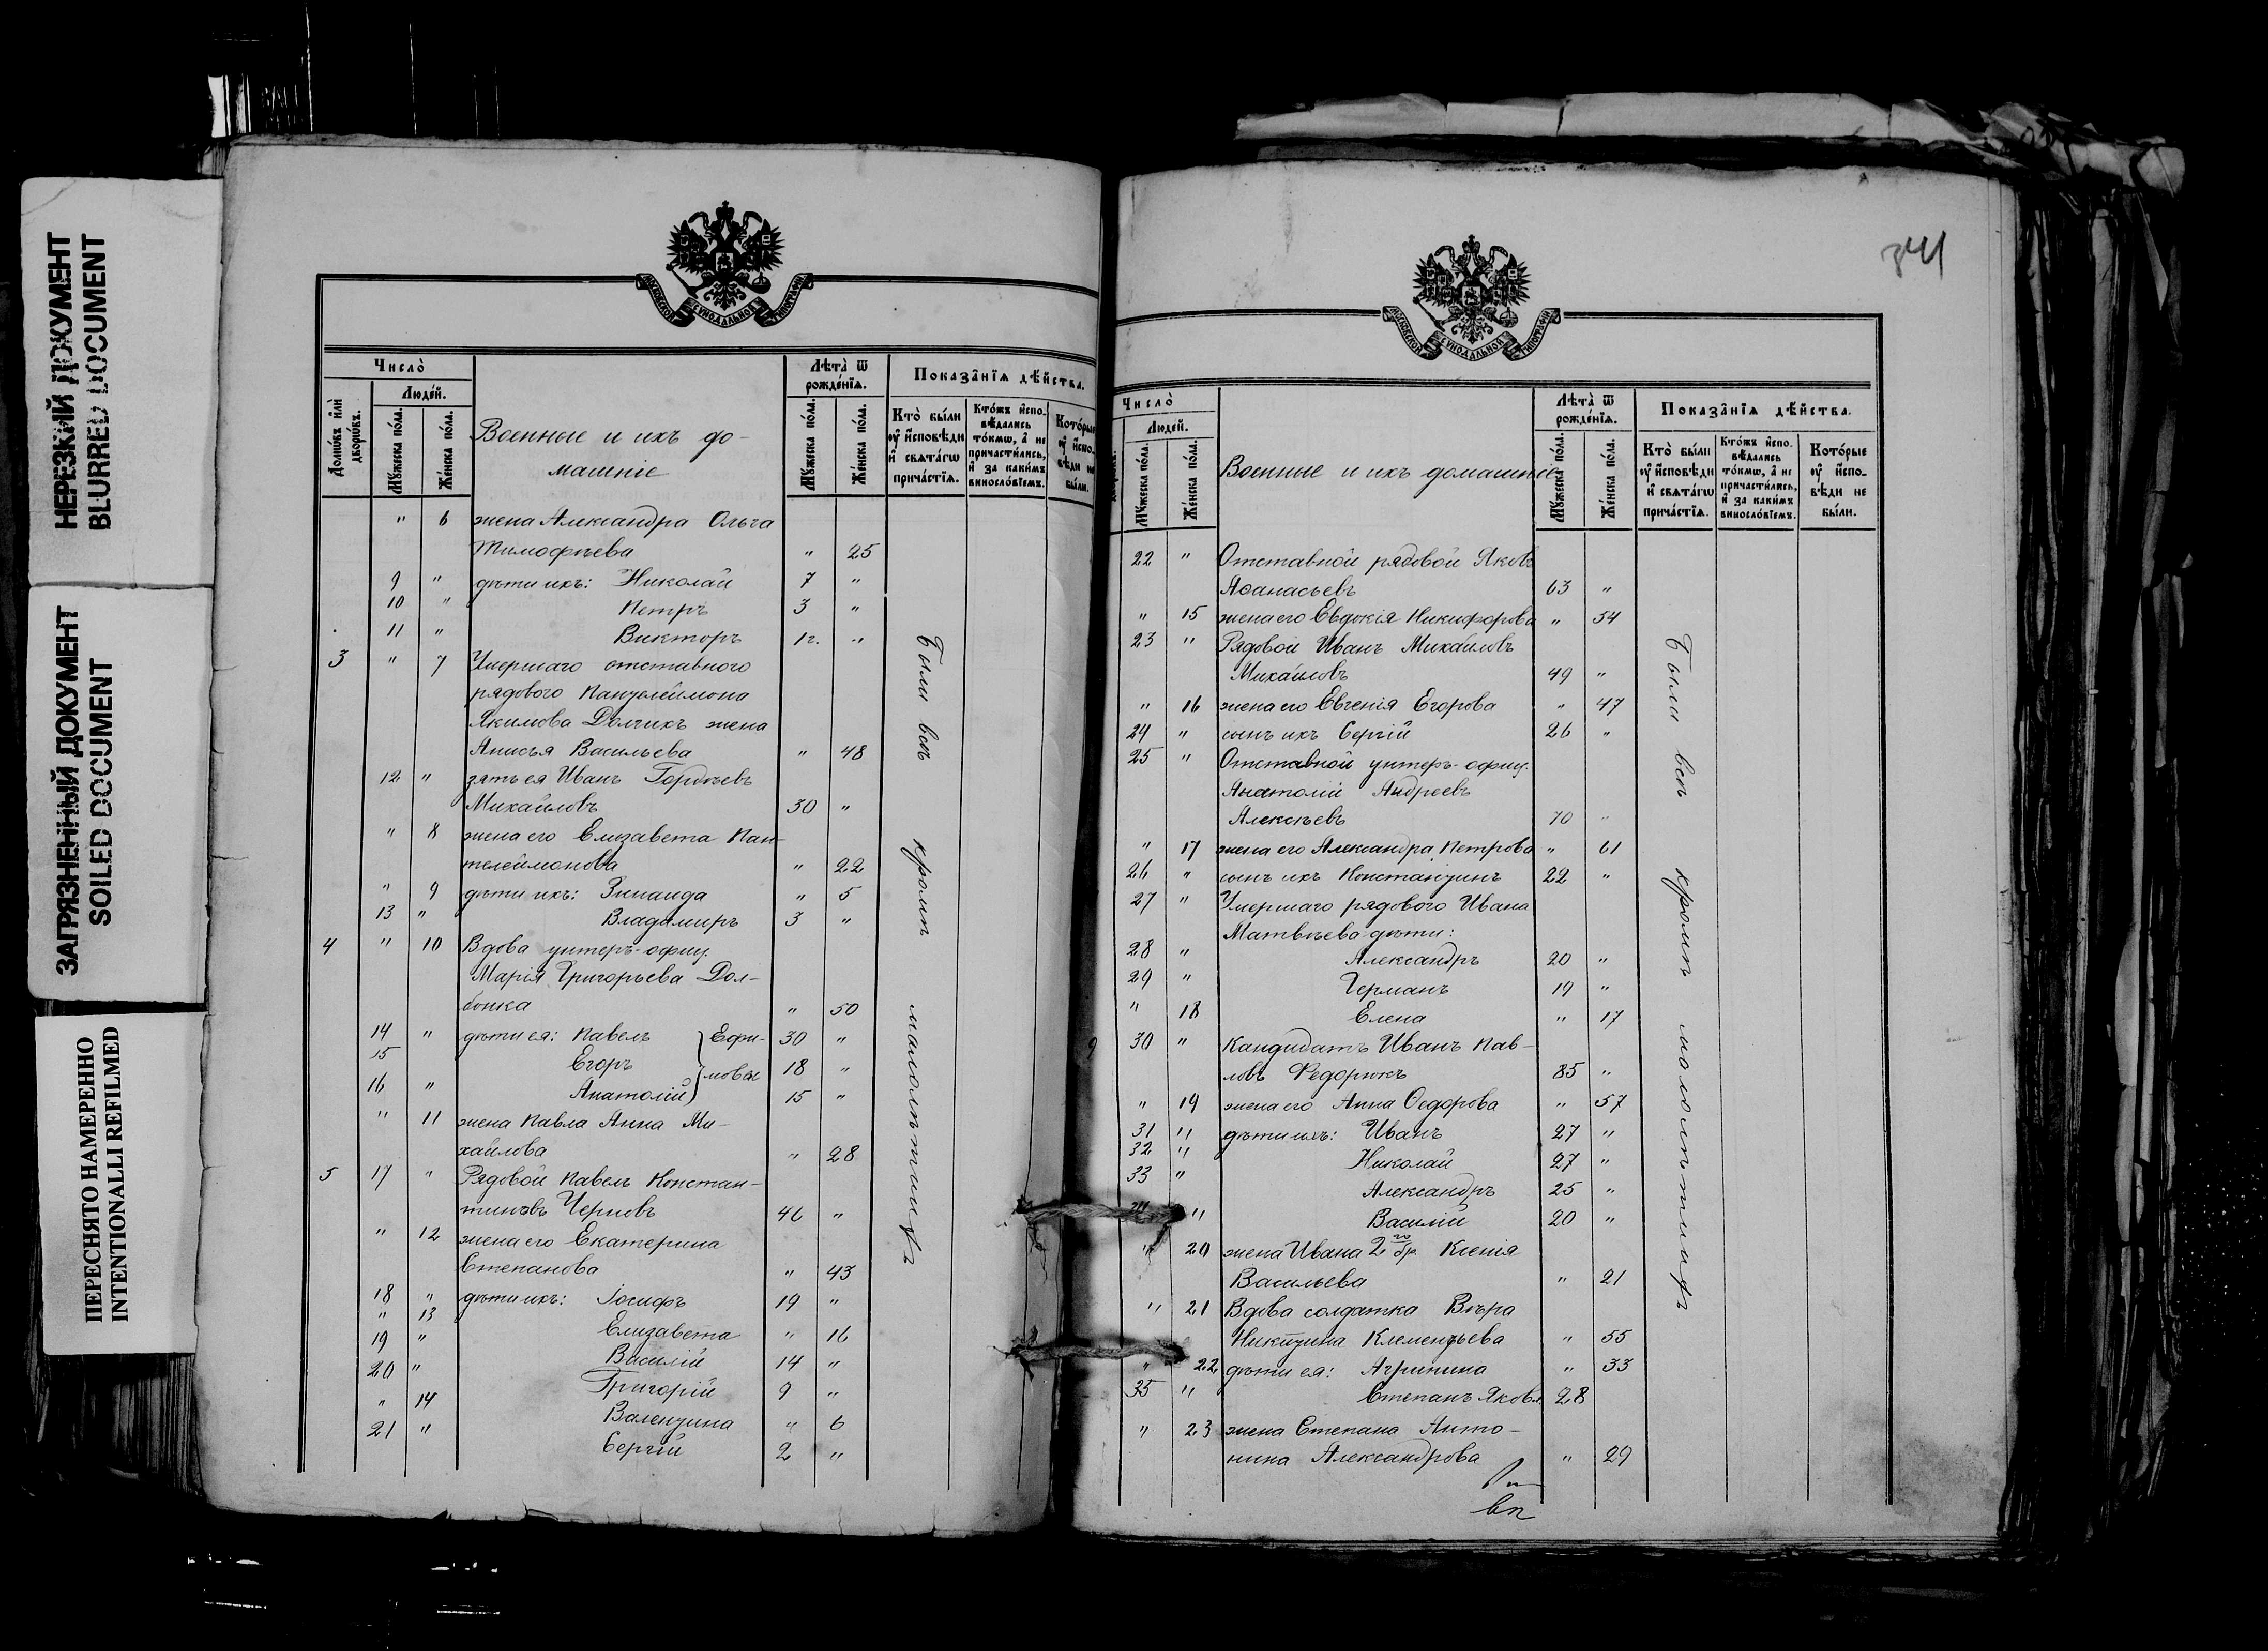 НЕРЕЗКИЙ ДОКУМЕНТ
BLURRED DOCUMENT
ЗАГРЯЗНЕННЫЙ ДОКУМЕНТ
SOILED DOCUMENT
ПЕРЕСНЯТО НАМЕРЕННО
INTENTIONALLI REFILMED
МОСКОВСКОЙ СѴНОДАЛЬНОЙ ТИПОГРАФІИ
Число̀
Домѡ́въ и҆лѝ дворѡ́въ.
Люде́й.
Мꙋ́жеска по́ла.
Же́нска по́ла.
Военные и ихъ до-
машніе
Лѣ́та ѿ рожде́нїѧ.
Мꙋ́жеска по́ла.
Же́нска по́ла.
Показа̑нїѧ дѣ́йства.
Кто̀ бы́ли ᲂу҆ и҆́сповѣди и҆ свѧта́гѡ прича́стїѧ.
Кто́жъ и҆спо-вѣ́дались то́кмѡ, а҆ не причасти́лись, и҆ за каки́мъ виносло́вїемъ.
Кото́рые ᲂу҆ и҆спо-вѣди не бы́ли.
" 6 жена Александра Ольга
Тимофѣева " 25
9 " дѣти ихъ: Николай 7 "
10 " Петръ 3 "
11 " Викторъ 1 г. "
3 " 7 Умершаго отставного
рядового Пантелеймона
Якимова Долгихъ жена
Анисья Васильева " 48
12 " зять ея Иванъ Гордѣевъ
Михайловъ 30 "
" 8 жена его Елизавета Пан-
телеймонова " 22
" 9 дѣти ихъ: Зинаида " 5
13 " Владимиръ 3 "
4 " 10 Вдова унтеръ-офиц.
Марія Григорьева Дол-
бонка " 50
14 " дѣти ея: Павелъ } Ефи- 30 "
15 Егоръ мовы 18 "
16 " Анатолій 15 "
" 11 жена Павла Анна Ми-
хайлова " 28
5 17 " Рядовой Павелъ Констан-
тиновъ Черновъ 46 "
" 12 жена его Екатерина
Степанова " 43
18 " дѣти ихъ: Іосифъ 19 "
" 13 Елизавета " 16
19 " Василій 14 "
20 " Григорій 9 "
" 14 Валентина " 6
21 " Сергій 2 "
Были всѣ кромѣ малолѣтнихъ
341
МОСКОВСКОЙ СѴНОДАЛЬНОЙ ТИПОГРАФІИ
Число̀
Люде́й.
Мꙋ́жеска по́ла.
Же́нска по́ла.
Военные и ихъ домашніе
Лѣ́та ѿ рожде́нїѧ.
Мꙋ́жеска по́ла.
Же́нска по́ла.
Показа̑нїѧ дѣ́йства.
Кто̀ бы́ли ᲂу҆ и҆́сповѣди и҆ свѧта́гѡ прича́стїѧ.
Кто́жъ и҆спо-вѣ́дались то́кмѡ, а҆ не причасти́лись, и҆ за каки́мъ виносло́вїемъ.
Кото́рые ᲂу҆ и҆спо-вѣди не бы́ли.
22 " Отставной рядовой Яковъ
Аѳанасьевъ 63 "
" 15 жена его Евдокія Никифорова " 54
23 " Рядовой Иванъ Михайловъ
Михайловъ 49 "
" 16 жена его Евгенія Егорова " 47
24 " сынъ ихъ Сергій 26 "
25 " Отставной унтеръ-офиц.
Анатолій Андреевъ
Алексѣевъ 70 "
" 17 жена его Александра Петрова " 61
26 " сынъ ихъ Константинъ 22 "
27 " Умершаго рядового Ивана
Матвѣева дѣти:
28 " Александръ 20 "
29 " Германъ 19 "
" 18 Елена " 17
9 30 " Кандидатъ Иванъ Пав-
ловъ Федорюкъ 85 "
" 19 жена его Анна Ѳедорова " 57
31 " дѣти ихъ: Иванъ 27 "
32 " Николай 27 "
33 " Александръ 25 "
34 " Василій 20 "
" 20 жена Ивана 2го бр. Ксенія
Васильева " 21
" 21 Вдова солдатка Вѣра
Никитина Клементьева " 55
" 22 дѣти ея: Агрипина " 33
35 " Степанъ Яковл. 28
" 23 жена Степана Анто-
нина Александрова " 29
Были всѣ кромѣ малолѣтнихъ